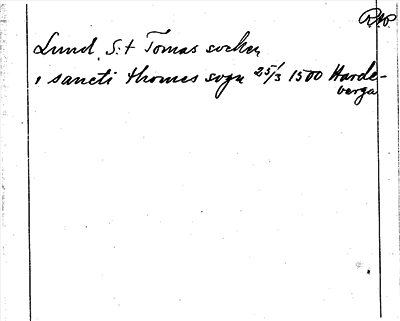 RAP.
Lund, S:t Tomas socken
i sancti thomes sogn 25/3 1500 Harde-
berga